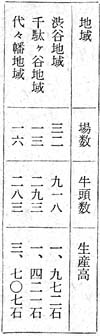 地域　場数　牛頭数　生産高
渋谷地域　三二　九一八　一、九七二石
千駄ヶ谷地域　一三　二九三　一、四二一石
代々幡地域　一六　二八三　三、七〇七石